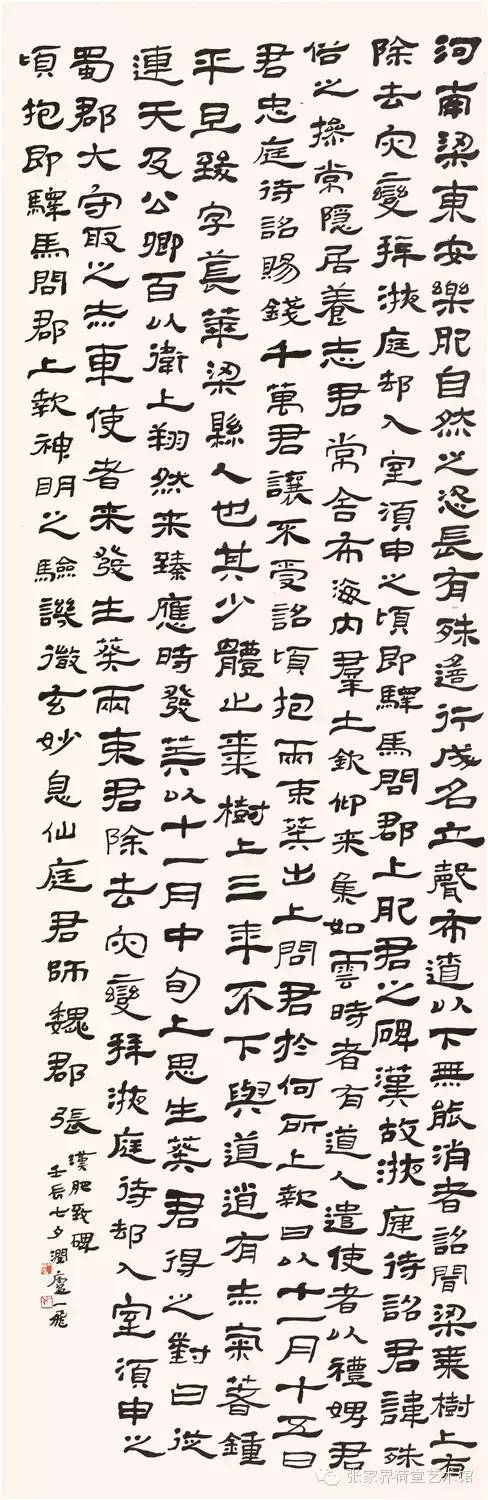 河南梁東安樂肥自然之恣長有殊遠行成名立聲布遺以下無能消者詔聞梁棗樹上有
除去灾變拜掖庭却入室須申之頃即驛馬問郡上肥君之碑漢故掖庭待詔君諱殊
俗之操常隱居養志君常舍布海內羣土欽仰来集如雲時者有道人遣使者以禮娉君
君忠庭待詔賜錢千萬君讓不受詔頃抱兩束葵出上問君於何所上款曰以十一月十五日
平旦致字萇華梁縣人也其少體止棗樹上三年不下與道逍有赤氣著鍾
連天及公卿百以衛上翔然来臻應時發葵以十一月中旬上思生葵君得之對曰從
蜀郡大守取之赤車使者来發生葵兩束君除去灾變拜掖庭待却入室須申之
頃抱即驛馬問郡上款神明之驗譏徹玄妙息仙庭君師魏郡張
漢肥致碑
壬辰七夕潤廬一飛
张家界荷堂艺术馆